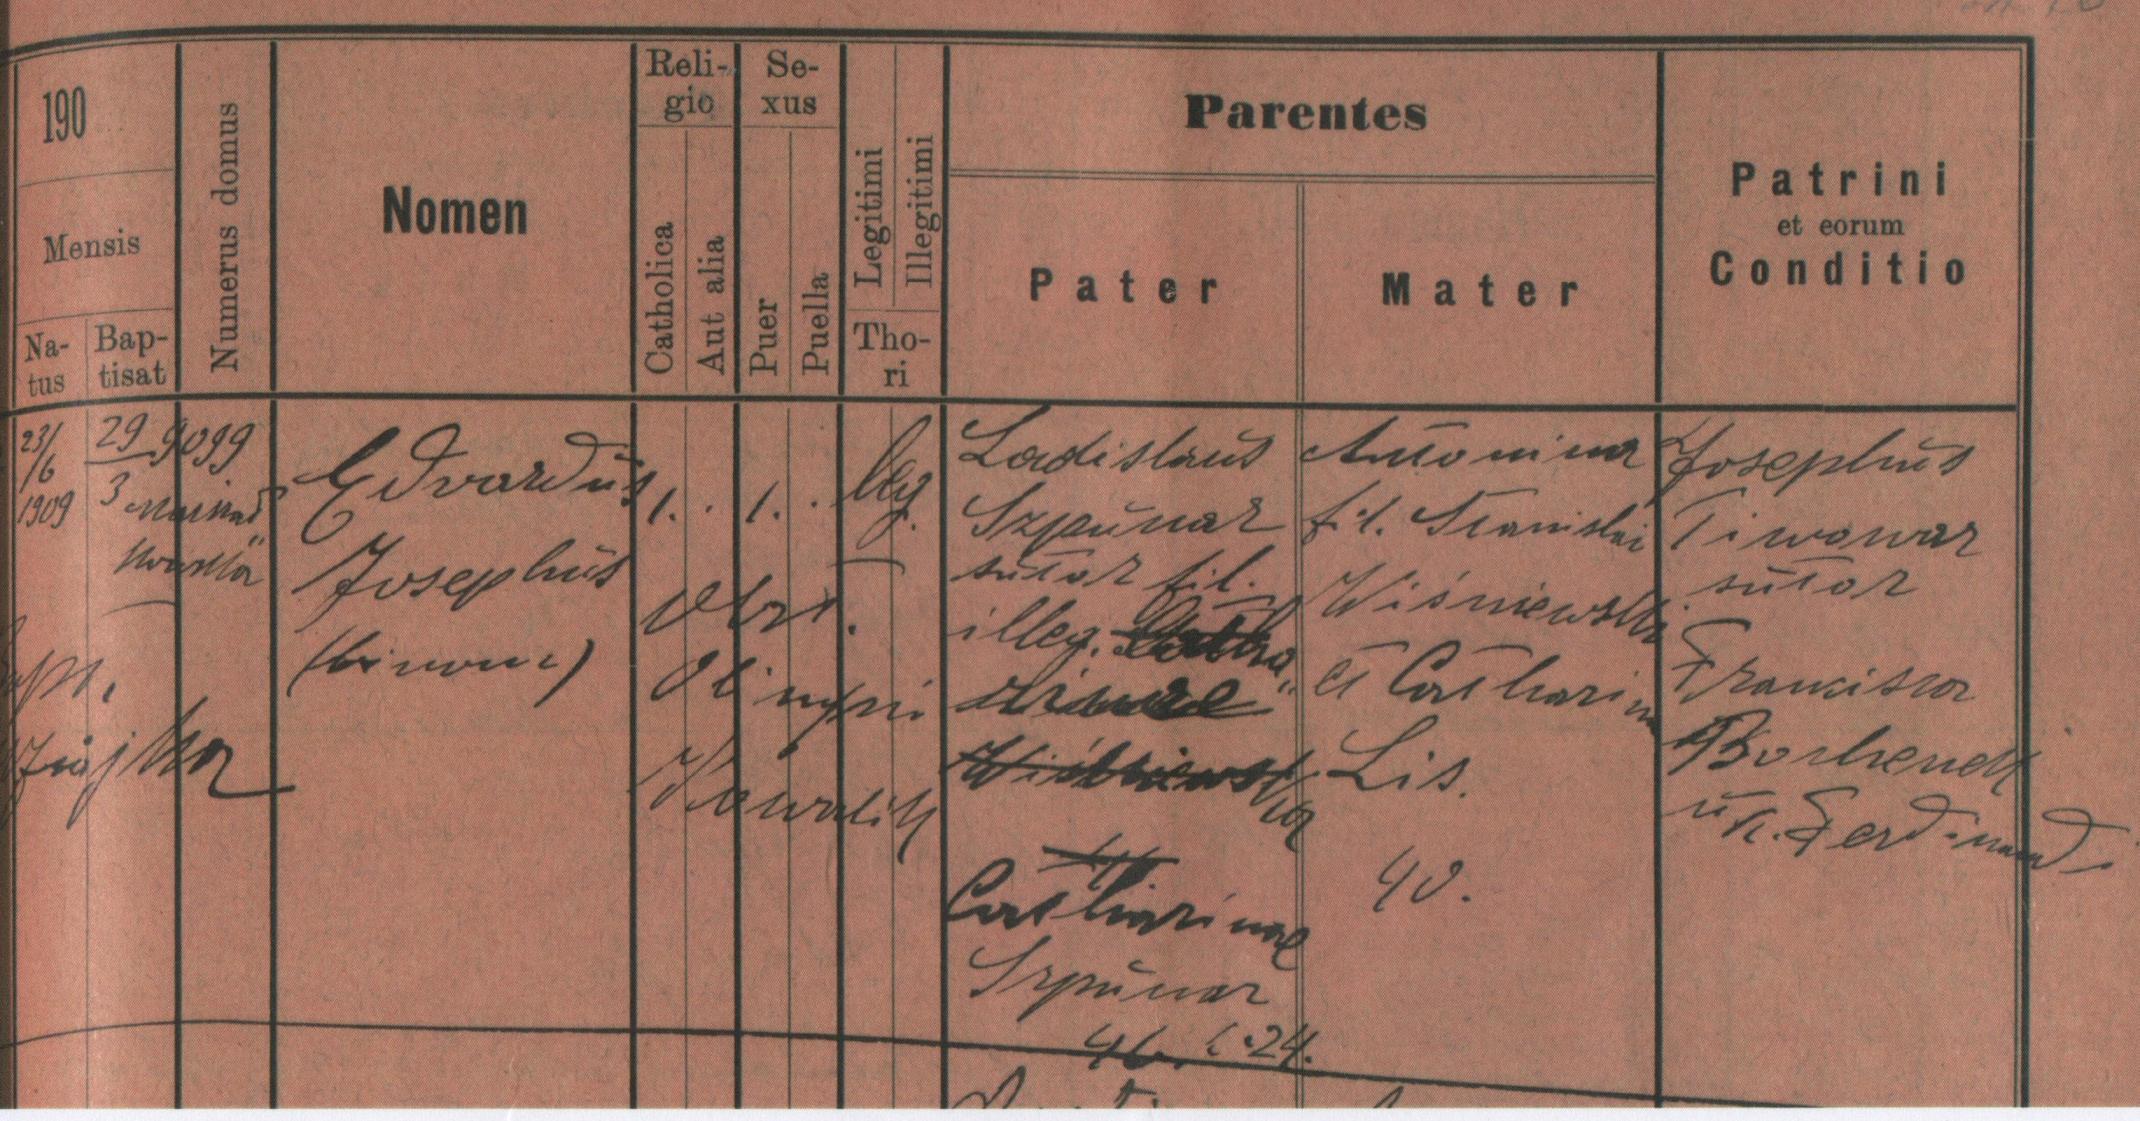 190
Mensis
Na-
tus
Bap-
tisat
Numerus domus
Nomen
Reli-
gio
Catholica
Aut alia
Se-
xus
Puer
Puella
Legitimi
Illegitimi
Tho-
ri
Parentes
Pater
Mater
Patrini
et eorum
Conditio
23/
/6
1909
29
3
9099
Edvardus
Josephus
(binom.)
1. . 1. . leg.
Obst.
Olimpii
Kowalik
Ladislaus
Szpunar
sutor fil.
illeg.
Catharinae
Szpunar
l. 24.
Antonina
fil. Stanislai
Wiśniewski
et Catharina
Lis.
40.
Josephus
Piwowar
sutor
Francisca
Bochenek
ux. Ferdinandi